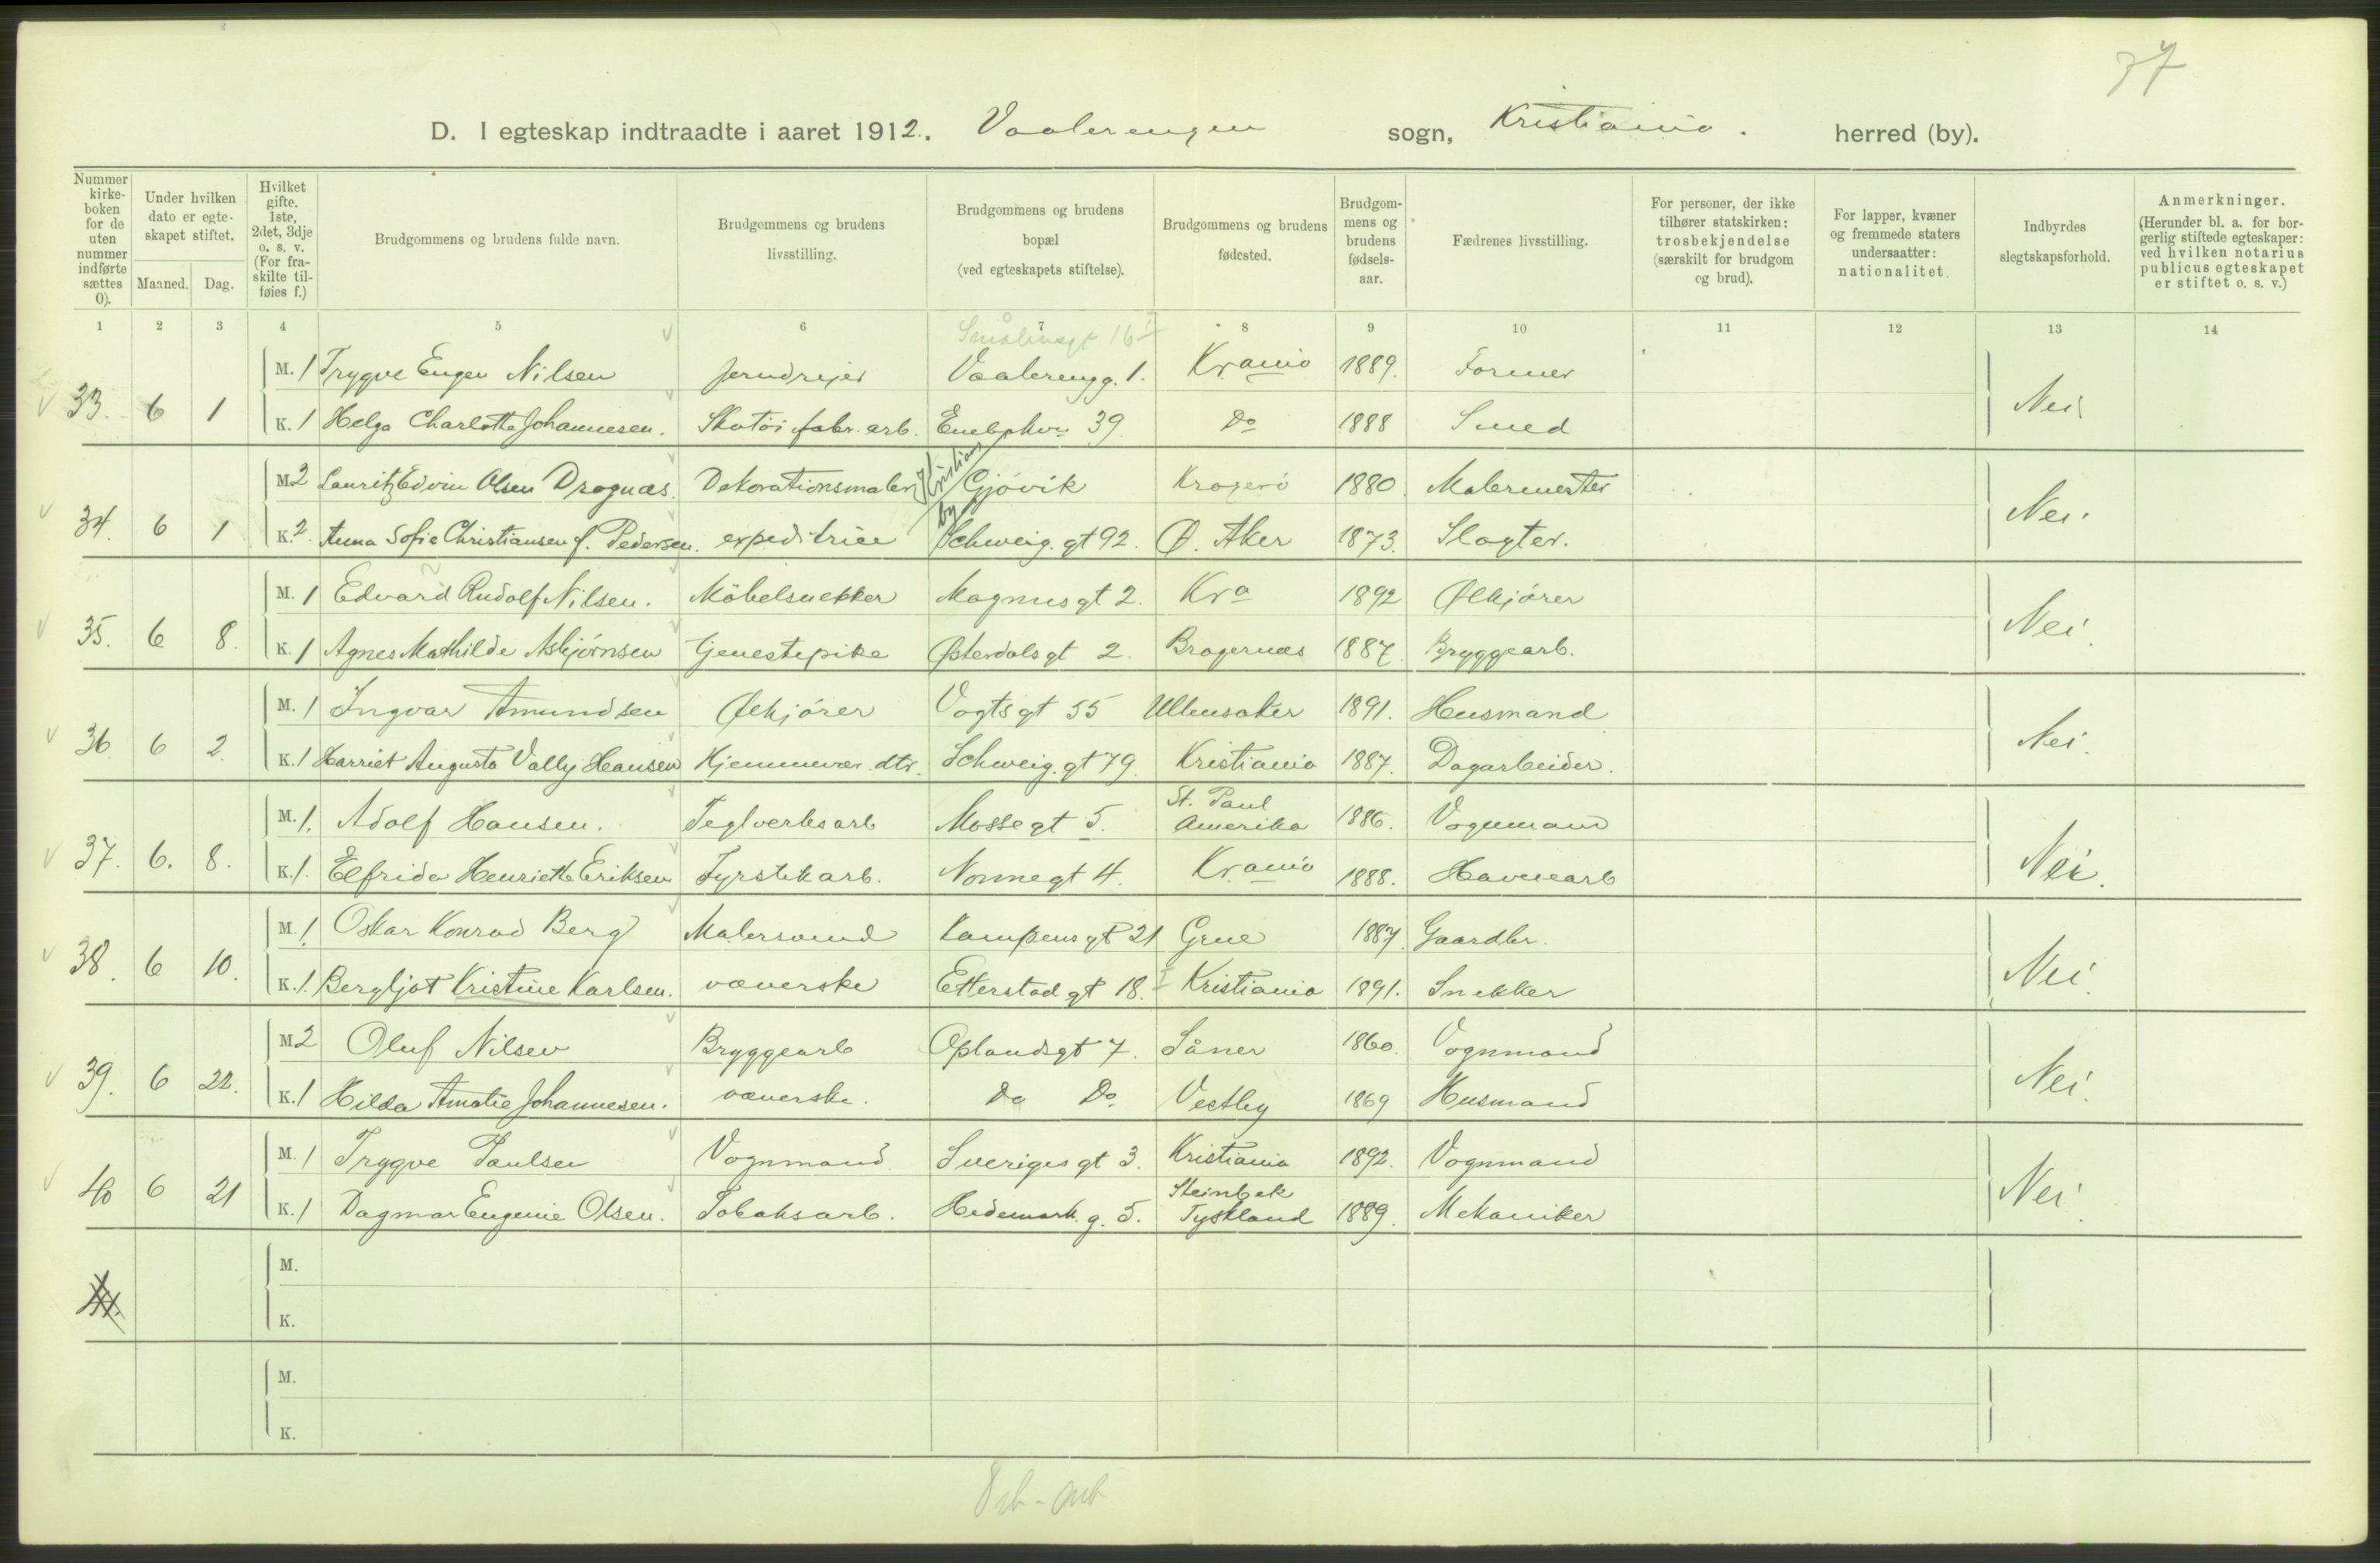 37
D. I egteskap indtraadte i aaret 1912. Vaalerengen sogn, Kristiania. herred (by).
Nummer kirkeboken for de uten nummer indførte sættes 0).
Under hvilken dato er egteskapet stiftet.
Maaned. Dag.
Hvilket gifte. 1ste, 2det, 3dje o. s. v. (For fraskilte tilføies f.)
Brudgommens og brudens fulde navn.
Brudgommens og brudens livsstilling.
Brudgommens og brudens bopæl (ved egteskapets stiftelse).
Brudgommens og brudens fødested.
Brudgommens og brudens fødselsaar.
Fædrenes livsstilling.
For personer, der ikke tilhører statskirken: trosbekjendelse (særskilt for brudgom og brud).
For lapper, kvæner og fremmede staters undersaatter: nationalitet.
Indbyrdes slegtskapsforhold.
Anmerkninger. (Herunder bl. a. for borgerlig stiftede egteskaper: ved hvilken notarius publicus egteskapet er stiftet o. s. v.)
1 2 3 4 5 6 7 8 9 10 11 12 13 14
M. 1 Trygve Eugen Nilsen Jerndrejer Vaalerengg. 1. Kr.ania 1889. Former
33. 6 1 Nei
K. 1 Helga Charlotte Johannesen. Skotøi fabr. arb. Enebakvn 39 Do 1888 Smed
M. 2 Lauritz Edvin Olsen Dragnæs. Dekorationsmaler Kristians by Gjøvik Kragerø 1880. Malermester
34. 6 1 Nei.
K. 2. Anna Sofie Christiansen f. Pedersen. expeditrice Schweig. gt 92. Ø. Aker 1873. Slagter.
M. 1 Edvard Rudolf Nilsen. Möbelsnekker Magnusgt 2. Kra 1892 Ølkjører
35. 6 8. Nei.
K. 1 Agnes Mathilde Asbjørnsen Tjenestepike Østerdalsgt 2. Bragernæs 1887. Bryggearb.
M. 1 Ingvar Amundsen Ølkjører Vogtsgt 55 Ullensaker 1891. Husmand
36 6 2. Nei.
K. 1 Harriet Augusta Vally Hansen Hjemmevær. dtr. Schweig. gt 79. Kristiania 1887. Dagarbeider.
M. 1. Adolf Hansen. Teglverksarb Mossegt 5. St. Paul Amerika 1886. Vognmand
37. 6. 8. Nei.
K. 1. Elfrida Henriette Eriksen Fyrstikarb. Nonnegt 4. Kr.ania 1888. Havnearb
M. 1. Oskar Konrad Berg Malersvend Kampensgt 21 Grue 1887. Gaardbr.
38. 6 10. Nei.
K. 1. Bergljot Kristine Karlsen. væverske Etterstadgt 18. Kristiania 1891. Snekker
M. 2 Oluf Nilsen Bryggearb Oplandsgt 7. Såner 1860. Vognmand
39. 6 22. Nei.
K. 1 Hilda Amalie Johannesen. væverske. Do Do Vestby 1869 Husmand
M. 1 Trygve Paulsen Vognmand Sverigesgt 3. Kristiania 1892. Vognmand
40 6 21 Nei.
K. 1 Dagmar Eugenie Olsen. Tobaksarb. Hedemark. g. 5. Steinbek Tyskland 1889. Mekaniker
M.
K.
M.
K.